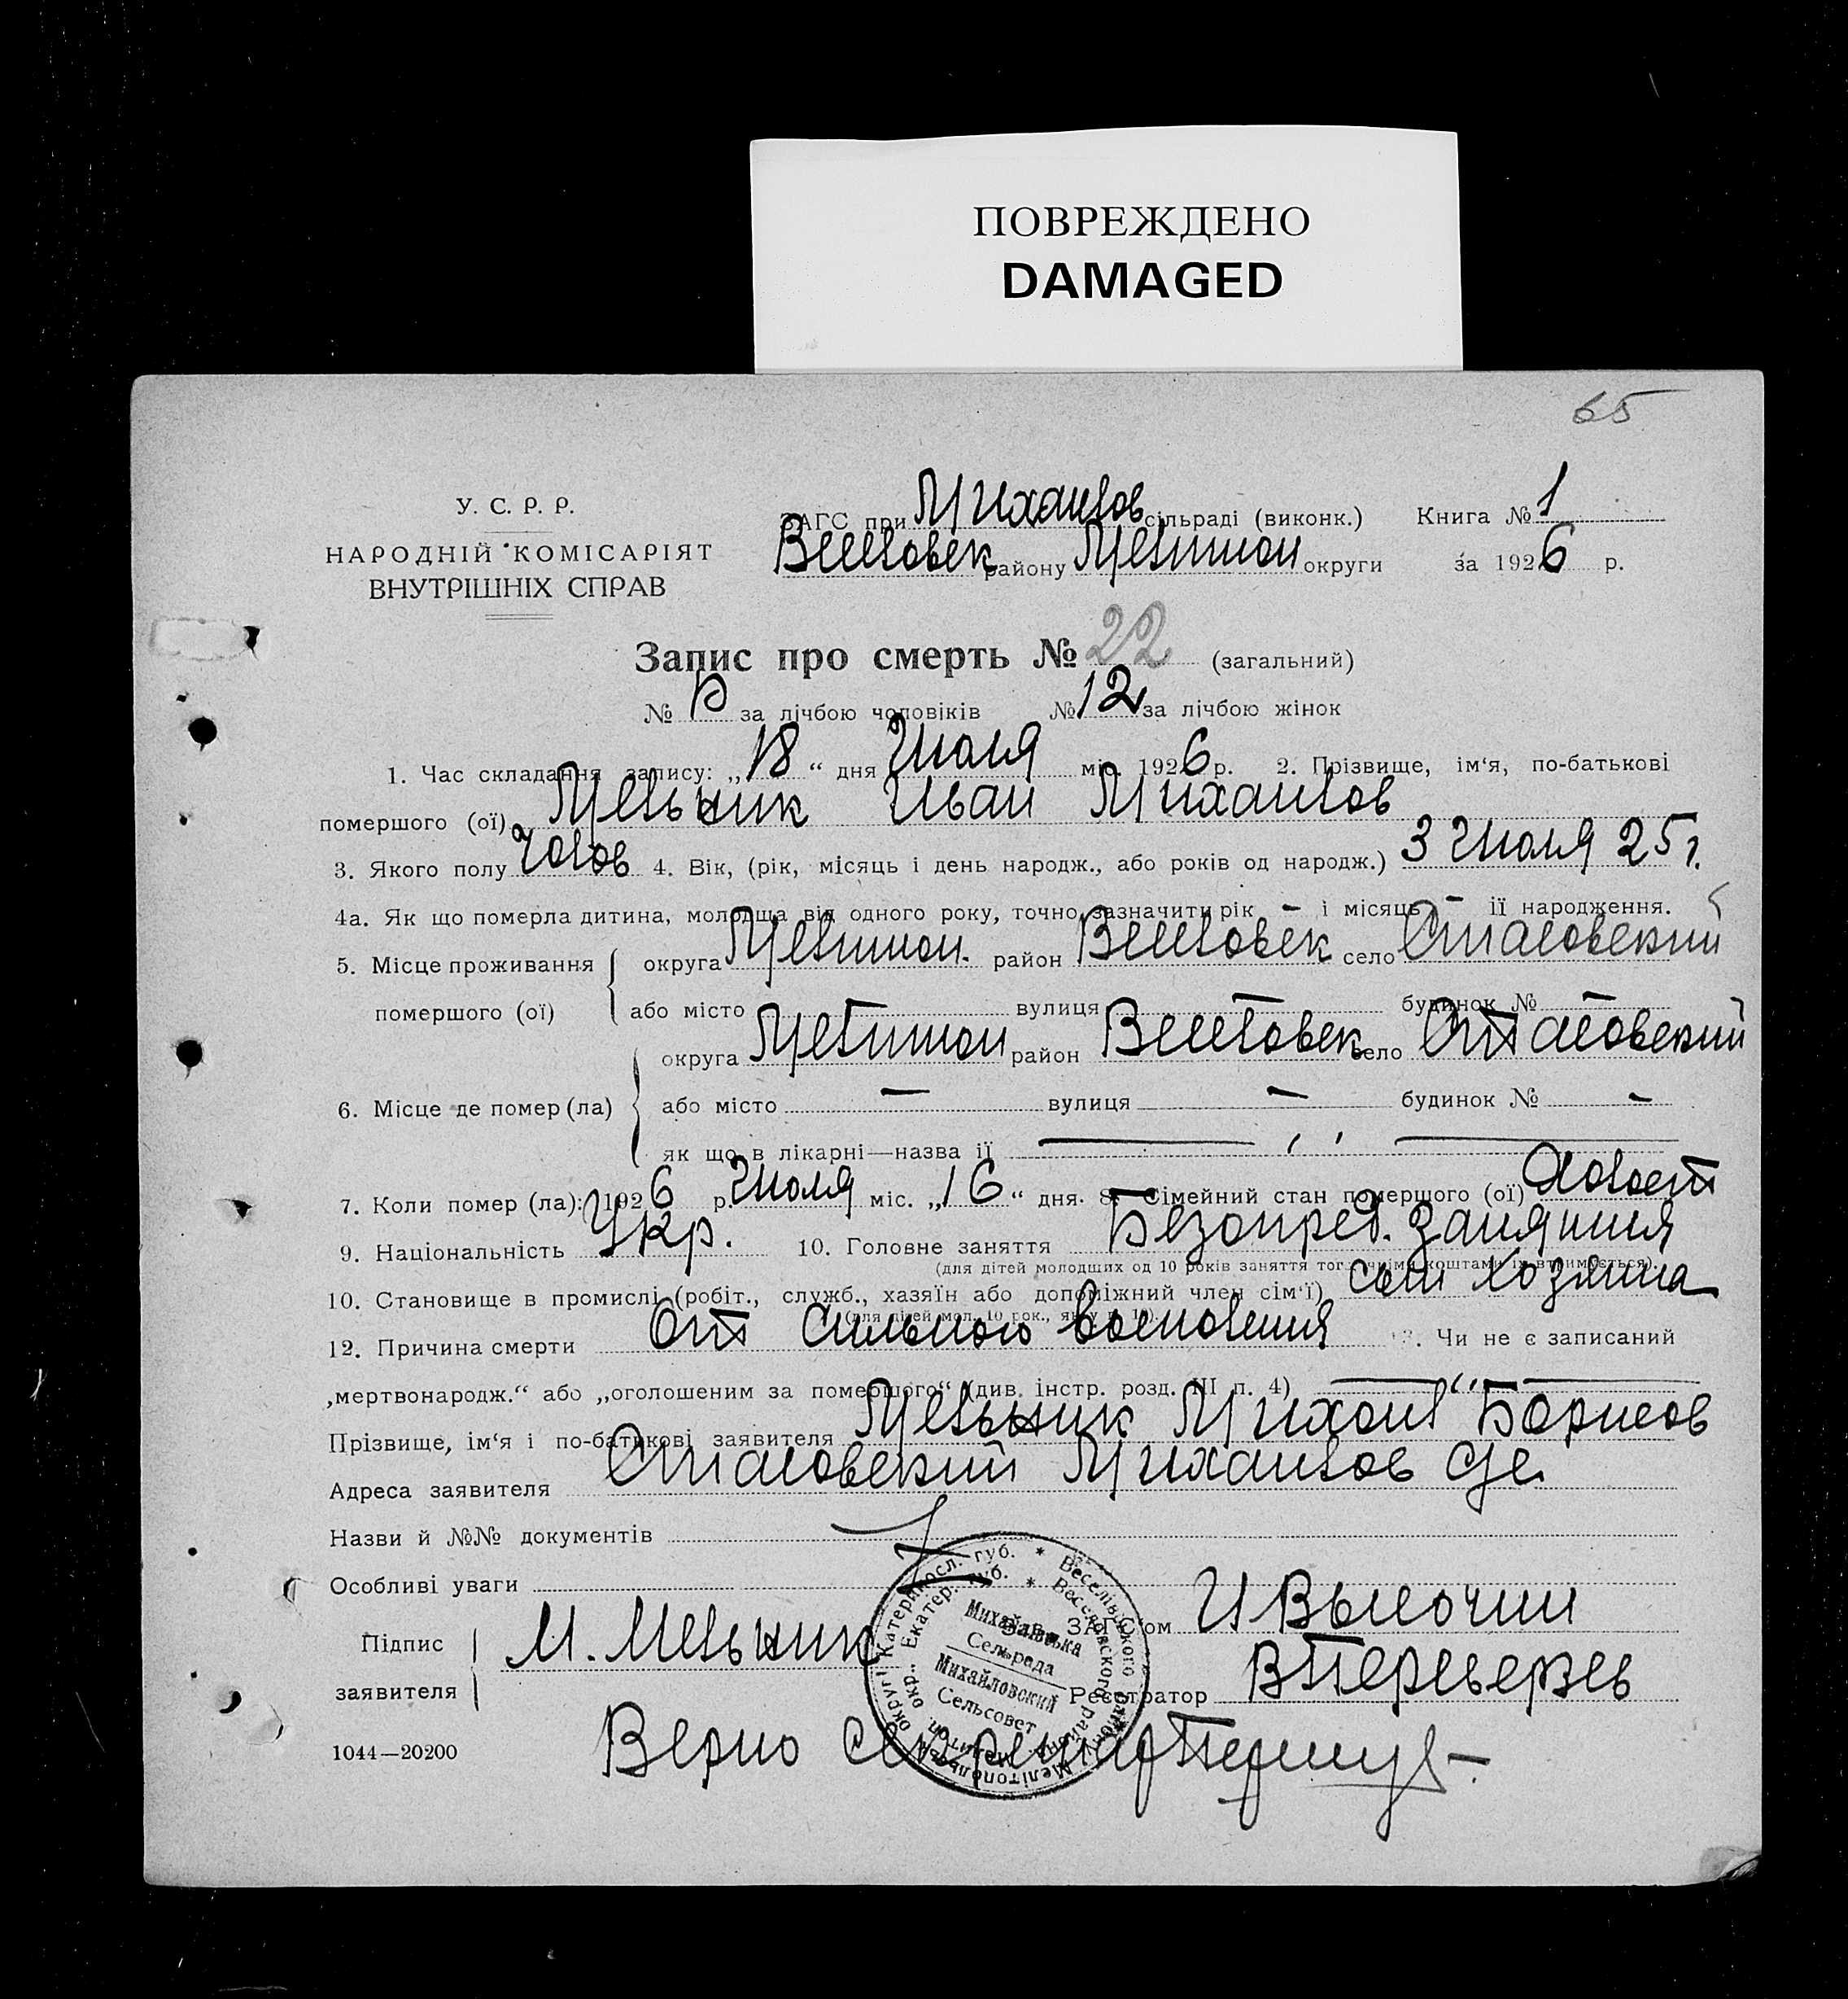 ПОВРЕЖДЕНО
DAMAGED
65
У. С. Р. Р.
НАРОДНІЙ КОМІСАРІЯТ
ВНУТРІШНІХ СПРАВ
ЗАГС при Михайлов сільраді (виконк.) Книга № 1
Веселовск району Мелитоп округи за 1926 р.
Запис про смерть № 22 (загальний)
№ за лічбою чоловіків № 12 за лічбою жінок
1. Час складання запису: „18“ дня Июля міс. 1926 р. 2. Прізвище, ім‘я, по-батькові
помершого (ої) Мельник Иван Михайлов
3. Якого полу Чолов 4. Вік, (рік, місяць і день народж., або років од народж.) 3 Июля 25 г.
4а. Як що померла дитина, молодща від одного року, точно зазначити рік – і місяць – її народження.
5. Місце проживання округа Мелитоп. район Веселовск село Стасовский
помершого (ої) або місто – вулиця – будинок № –
округа Мелитоп район Веселовск село Стасовский
6. Місце де помер (ла) або місто – вулиця – будинок № –
як що в лікарні—назва її — „ —
7. Коли помер (ла): 1926 р. Июля міс. „16“ дня. 8. Сімейний стан помершого (ої) Холост
9. Національність Укр. 10. Головне заняття Безопред. занятия
(для дітей молодших од 10 років заняття того, чиїми коштами їх втримується).
10. Становище в промислі (робіт., служб., хазяїн або допоміжний член сім‘ї) сын хозяина
(для дітей мол. 10 рок., як у п. 10).
12. Причина смерти От сильного восполения 13. Чи не є записаний
„мертвонародж.“ або „оголошеним за помершого“ (див. інстр. розд. III п. 4) — „ —
Прізвище, ім‘я і по-батькові заявителя Мельник Михаил Борисов
Адреса заявителя Стасовский Михайлов с/с.
Назви й №№ документів
Особливі уваги
Підпис заявителя М. Мельник
Зав. ЗАГС‘ом И Высочин
Реєстратор
1044—20200
Верно Секретар
округи Катериносл. губ. * Веселівського району Мелітопольськ.
окр., Екатер. губ. * Веселовского района Мелитоп.
Михайлівська
Сельрада
Михайловский
Сельсовет